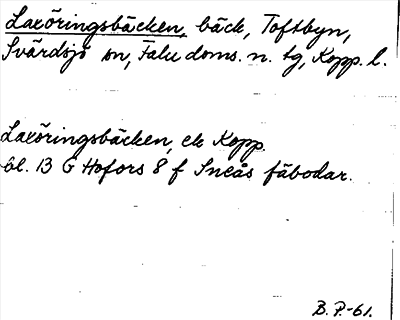 Laxöringsbäcken, bäck, Toftbyn,
Svärdsjö sn, Falu doms. n. tg, Kopp. l.
Laxöringsbäcken, ek Kopp.
bl. 13 G Hofors 8 f Sneås fäbodar.
B. P.-61.